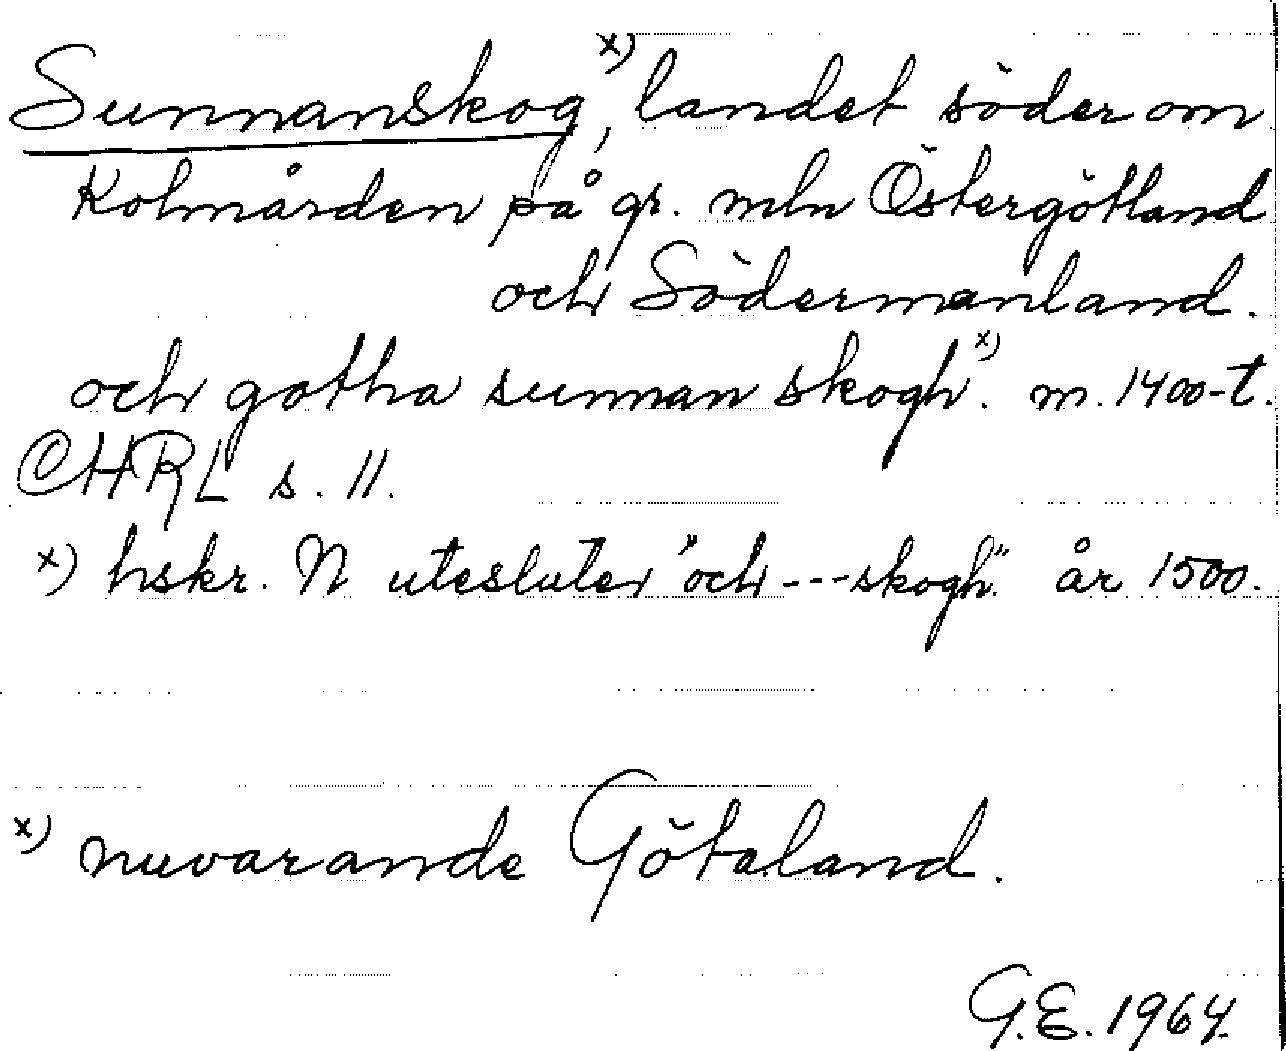 Sunnanskog,x) landet söder om
Kolmården på gr. mln Östergötland
och Södermanland.
och gotha sunnan skogh.x) m. 1400-t.
CHRL s. 11.
x) hskr. N utesluter "och---skogh" år 1500.
x) nuvarande Götaland.
G.E. 1964.